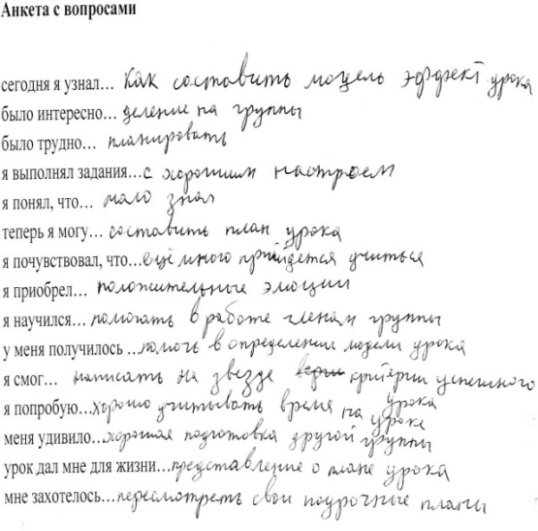 Анкета с вопросами
сегодня я узнал... как составить модель эффект урока
было интересно... деление на группы
было трудно... планировать
я выполнял задания...с хорошим настроем
я понял, что... мало знал
теперь я могу... составить план урока
я почувствовал, что...ещё много прийдется учиться
я приобрел... положительные эмоции
я научился... помогать в работе членам группы
у меня получилось ...помочь в определении модели урока
я смог... написать на звезде критерии успешного урока
я попробую...хорошо учитывать время на уроке
меня удивило...хорошая подготовка другой группы
урок дал мне для жизни...представление о плане урока
мне захотелось...пересмотреть свои поурочные планы